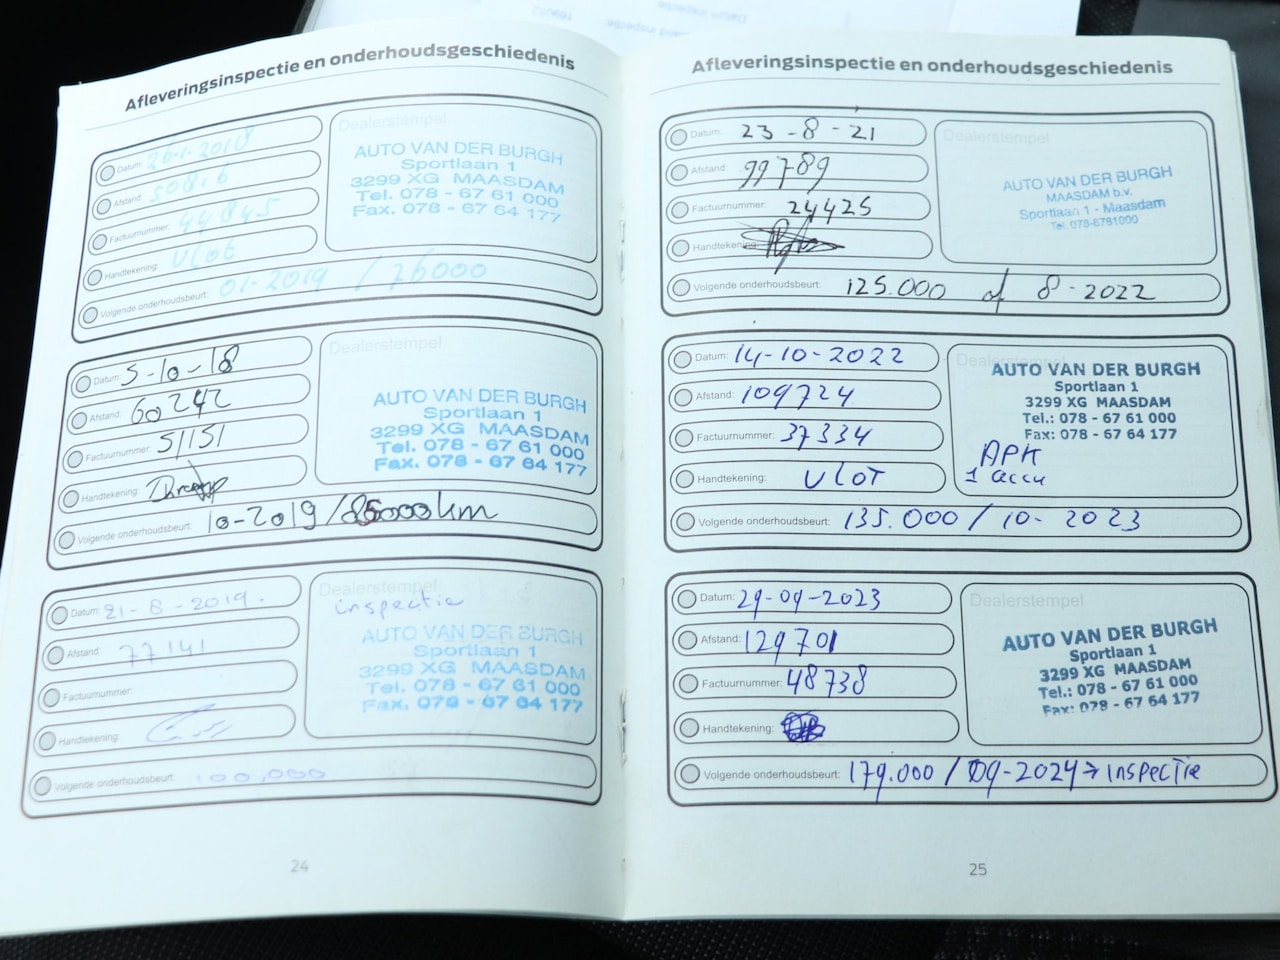 Afleveringsinspectie en onderhoudsgeschiedenis
Datum: 26-1-2018
Afstand: 50816
Factuurnummer: 44845
Handtekening: Vlot
Volgende onderhoudsbeurt: 01-2019 / 76000
Dealerstempel
AUTO VAN DER BURGH
Sportlaan 1
3299 XG MAASDAM
Tel. 078 - 67 61 000
Fax. 078 - 67 64 177
Datum: 5-10-18
Afstand: 60242
Factuurnummer: 51151
Handtekening:
Volgende onderhoudsbeurt: 10-2019 / 85000 km
Dealerstempel
AUTO VAN DER BURGH
Sportlaan 1
3299 XG MAASDAM
Tel. 078 - 67 61 000
Fax. 078 - 67 64 177
Datum: 21-8-2019.
Afstand: 77141
Factuurnummer:
Handtekening:
Volgende onderhoudsbeurt: 100,000
Dealerstempel
inspectie
AUTO VAN DER BURGH
Sportlaan 1
3299 XG MAASDAM
Tel. 078 - 67 61 000
Fax. 078 - 67 64 177
24
Afleveringsinspectie en onderhoudsgeschiedenis
Datum: 23-8-21
Afstand: 99789
Factuurnummer: 24425
Handtekening:
Volgende onderhoudsbeurt: 125.000 of 8-2022
Dealerstempel
AUTO VAN DER BURGH
MAASDAM b.v.
Sportlaan 1 - Maasdam
Tel. 078-6761000
Datum: 14-10-2022
Afstand: 109724
Factuurnummer: 37334
Handtekening: Vlot
Volgende onderhoudsbeurt: 135.000 / 10-2023
Dealerstempel
AUTO VAN DER BURGH
Sportlaan 1
3299 XG MAASDAM
Tel.: 078 - 67 61 000
Fax: 078 - 67 64 177
APK
1 accu
Datum: 29-09-2023
Afstand: 129701
Factuurnummer: 48738
Handtekening:
Volgende onderhoudsbeurt: 179.000 / 09-2024 → inspectie
Dealerstempel
AUTO VAN DER BURGH
Sportlaan 1
3299 XG MAASDAM
Tel.: 078 - 67 61 000
Fax: 078 - 67 64 177
25